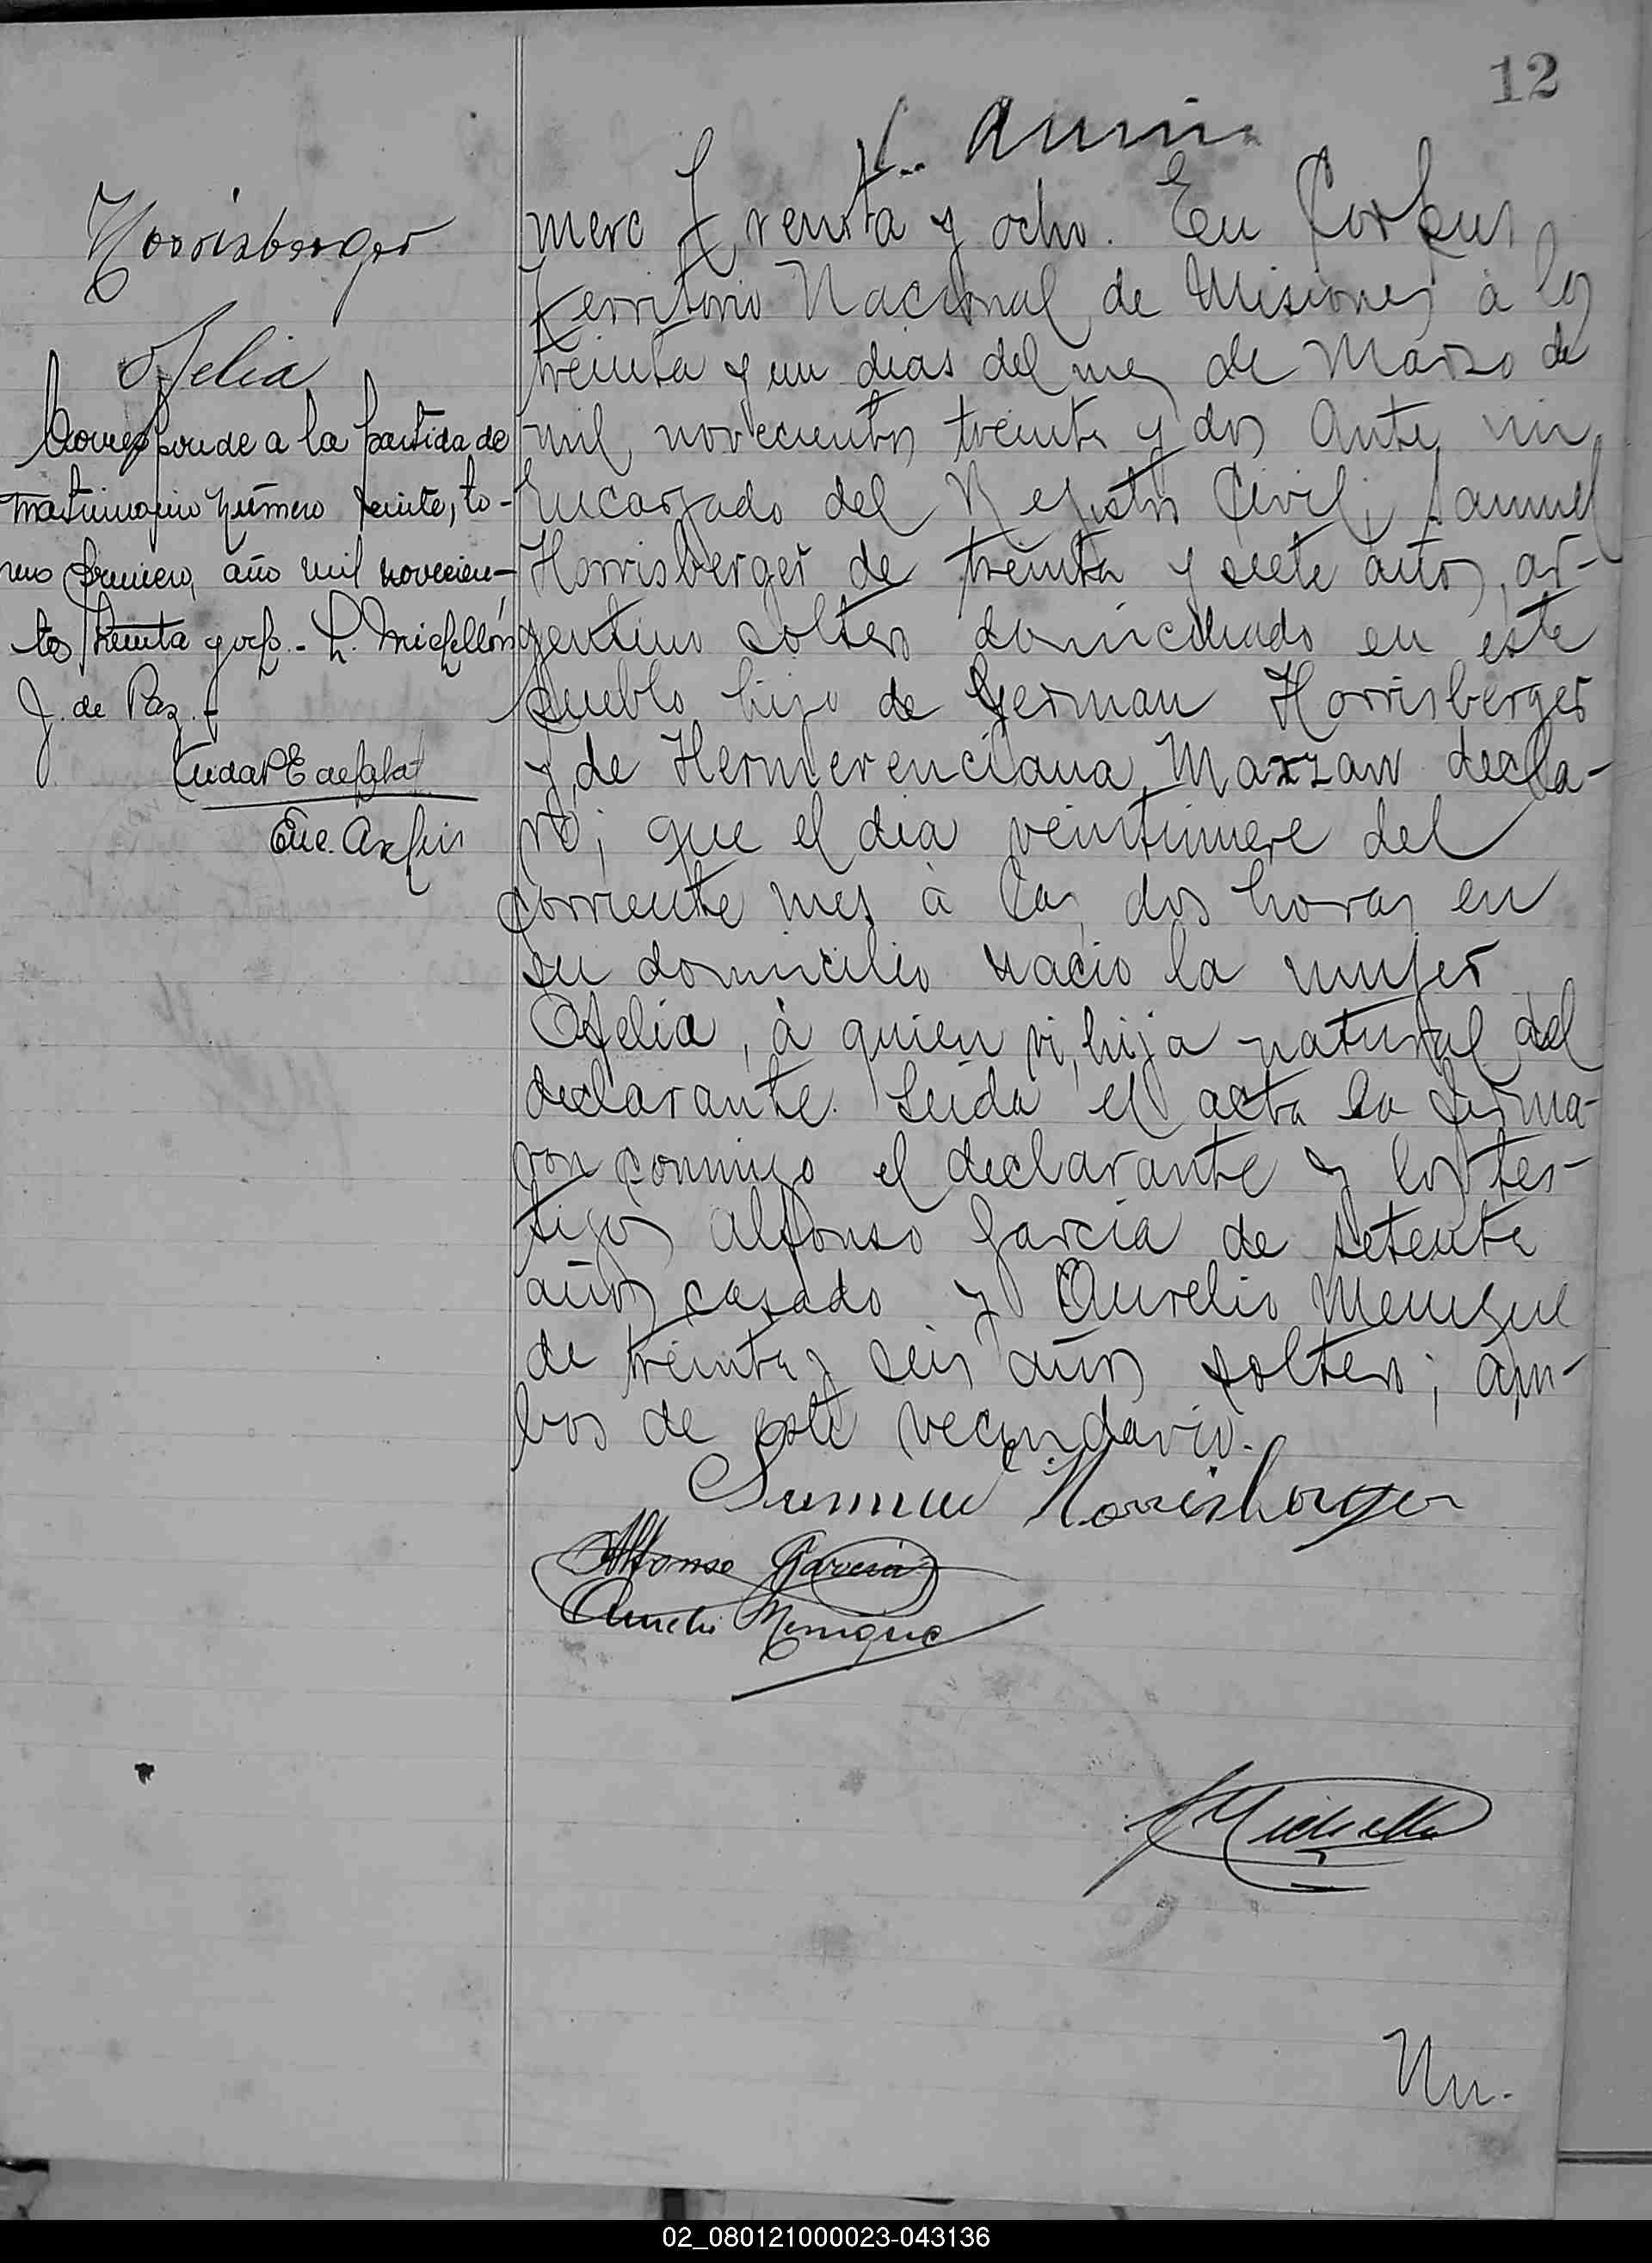 12
Horrisberger
Ofelia
Corresponde a la partida de
matrimonio número veinte, to-
mo primero, año mil novecien-
tos treinta y ocho.- L. Michellón
J. de Paz.-
Enc. Archivo
mero treinta y ocho. En Corpus
Territorio Nacional de Misiones à los
treinta y un dias del mes de Marzo de
mil novecientos treinta y dos Ante mi
Encargado del Registro Civil; Samuel
Horrisberger de treinta y siete años, ar-
gentino soltero domiciliado en este
pueblo hijo de German Horrisberger
y de Hermerenciana Marzan decla-
ró; que el dia veintinueve del
corriente mes à las dos horas en
su domicilio nacio la mujer
Ofelia, à quien vi, hija natural del
declarante. Leida el acta la firma-
ron conmigo el declarante y los tes-
tigos Alfonso Garcia de setenta
años casado y Aurelio Menigue
de treinta y seis años soltero; am-
bos de este vecindario.
Samuel Horrisberger
Alfonso Garcia
Aurelio Menigue
Nu-
02_080121000023-043136